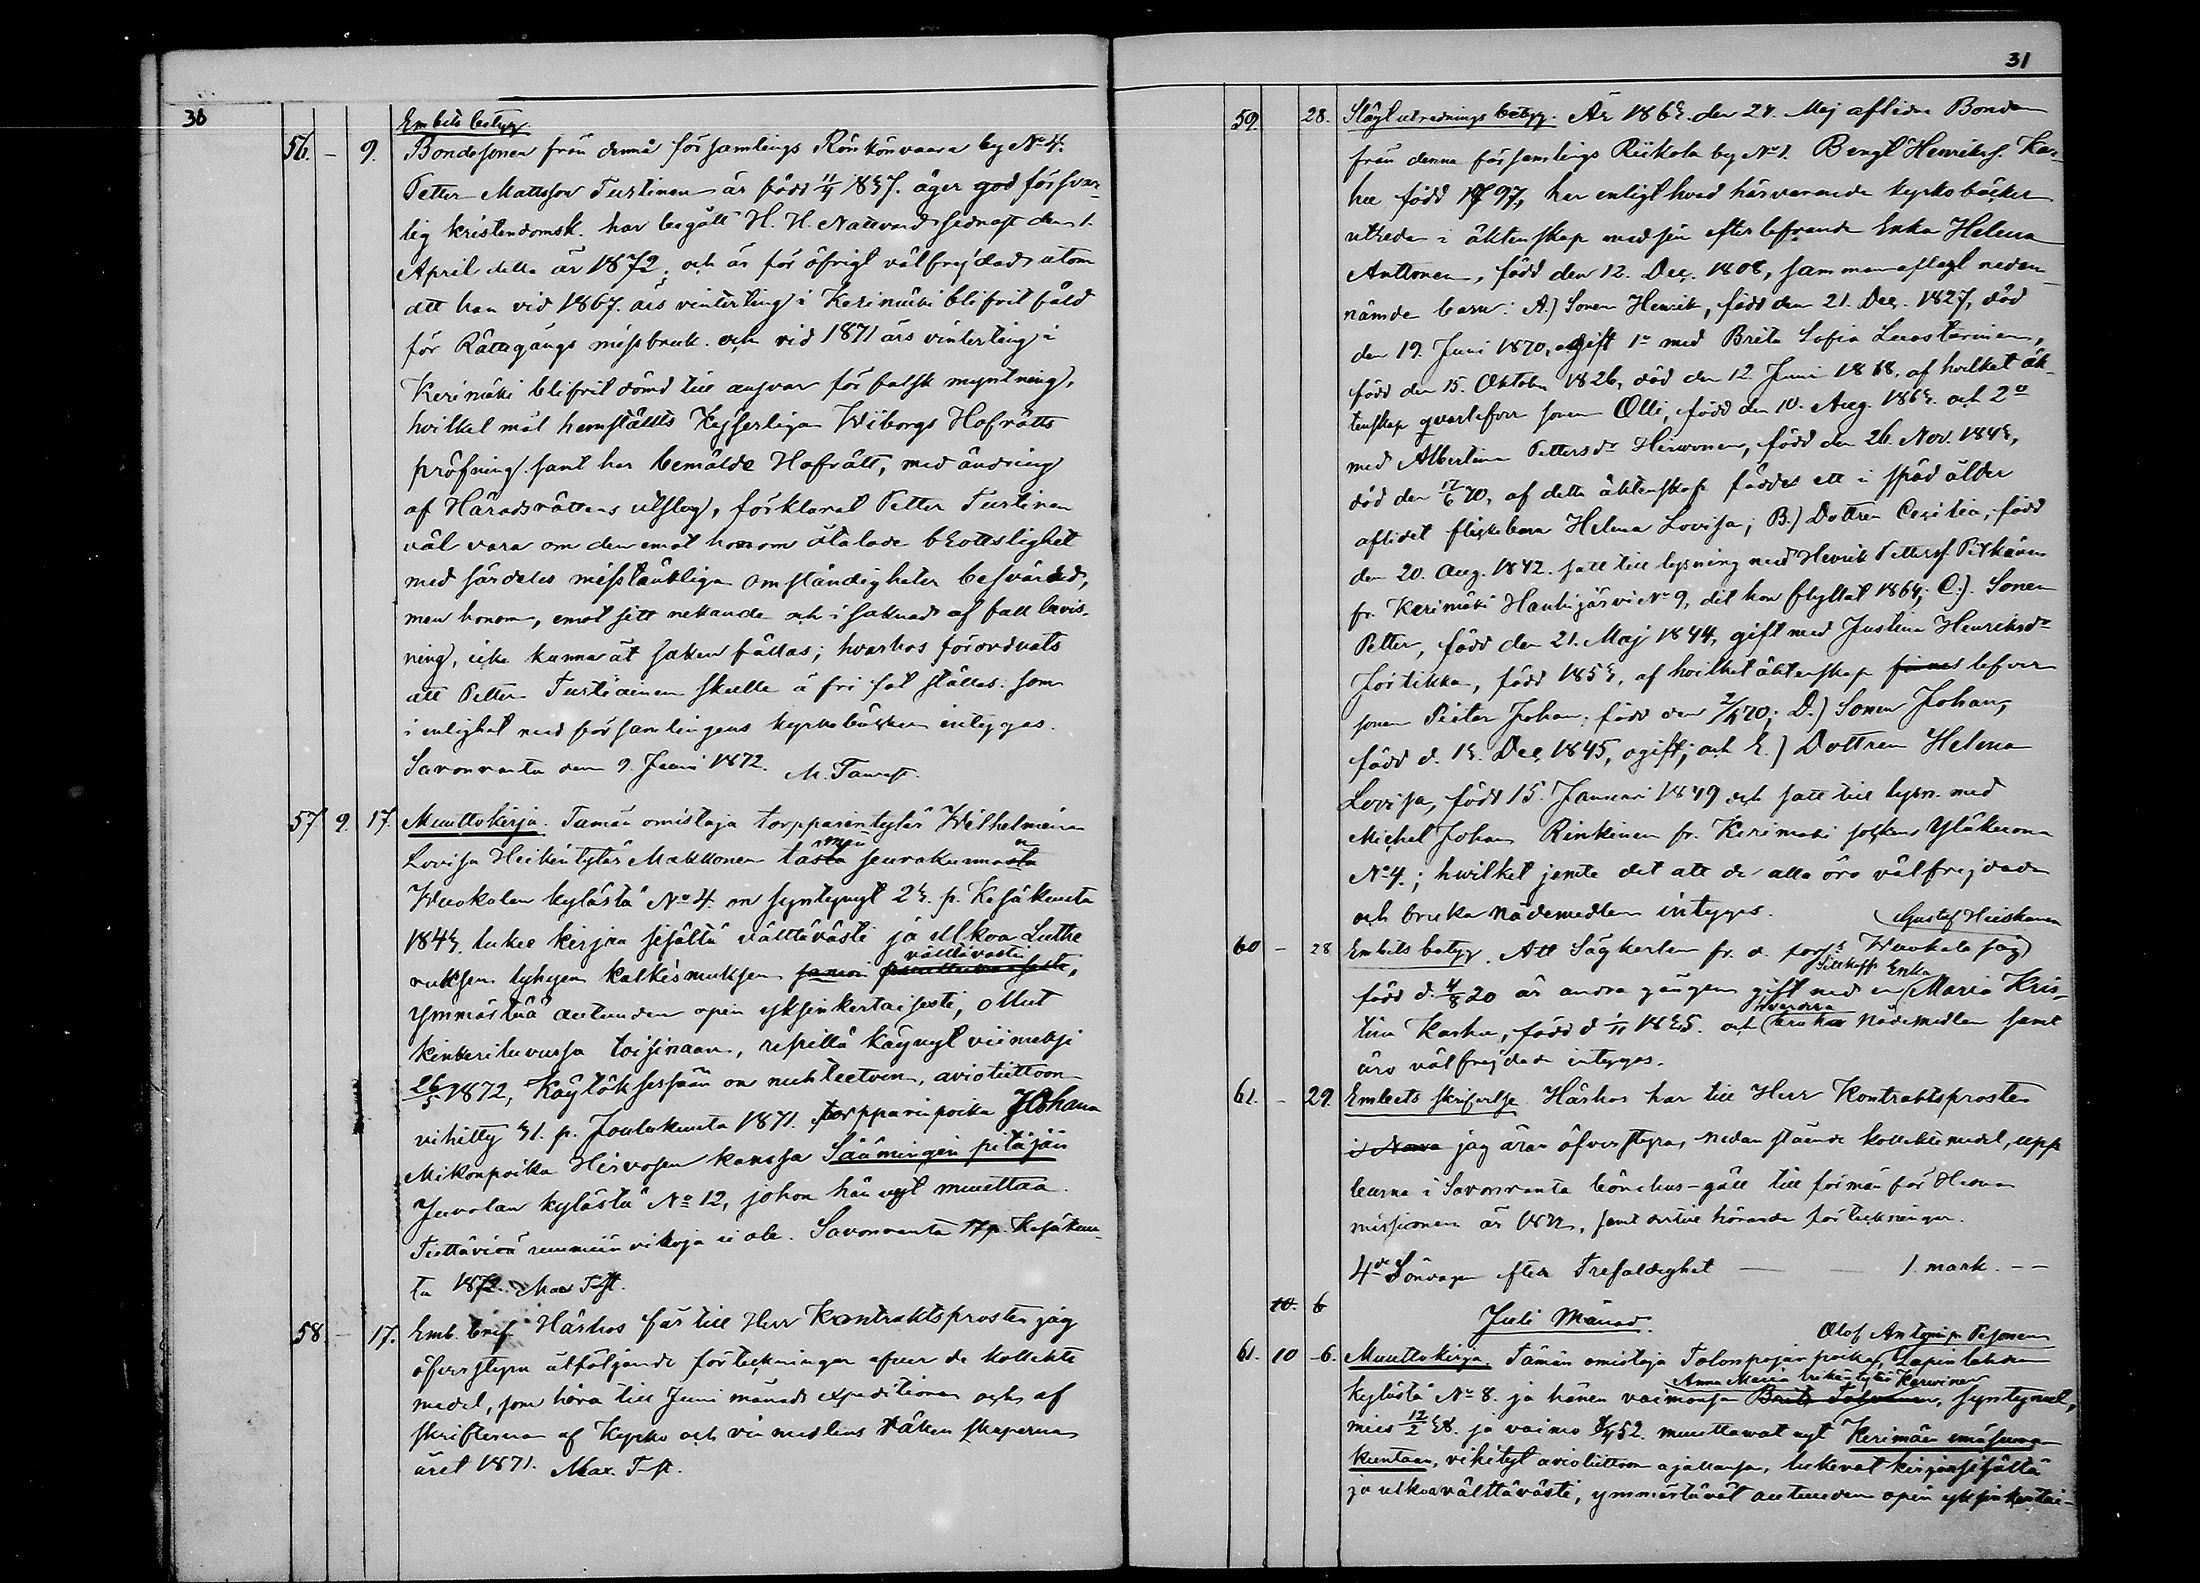 30
Embets betyg.
56. – 9. Bondesonen från denna församlings Rönkönvaara by No 4.
Petter Mattsson Turtinen är född 11/4 1837. äger god försvar-
lig kristendomsk. har begått H. H. Nattvard sednast den 1.
April detta år 1872, och är för öfrigt välfrejdad utom
att han vid 1867. års vinterting i Kerimäki blifvit fäld
för Rättegångs missbruk och vid 1871 års vinterting i
Kerimäki blifvit dömd till ansvar för falsk myntning,
hvilket mål hemställts Kejserliga Wiborgs Hofrätts
pröfning samt har bemälde Hofrätt, med ändring
af Häradsrättens utslag, förklarat Petter Turtinen
väl vara om den emot honom åtalade brottslighet
med särdeles misstänkliga omständigheter besvärad,
men honom, emot sitt nekande och i saknad af full bevis-
ning, icke kunna åt saken fällas; hvarhos förordnats
att Petter Turtiainen skulle å fri fot ställas. som
i enlighet med församlingens kyrkoböcker intygas.
Savonranta den 9. Juni 1872. M. Tawast.
57. 9. 17. Muuttokirja. Tämän omistaja torpparintytär Wilhelmiina
Lovisa Heikintytär Makkonen tästa seurakunnasta
Wuokalan kylästä No 4. on syntynyt 23. p. Kesäkuuta
1843. lukee kirjaa sisältä välttävästi ja ulkoa Luthe
välttävästi
ruksen lyhyen katkismuksen samoin
ymmärtää autuuden opin yksinkertaisesti, ollut
kinkeriluvussa toisinaan, ripillä käynyt viimeksi
26/5 1872, Käytöksessään on nuhteetoin, avioliittoon
vihitty 31. p. Joulukuuta 1871. torpparinpoika Johana
Mikonpoika Hirvosen kanssa Säämingin pitäjän
Juvolan kylästä No 12, johon hän nyt muuttaa.
Tiettäviä ruumiin vikoja ei ole. Savonranta 17 p. Kesäkuu-
ta 1872. Max T-st.
58. – 17. Emb. bref Härhos får till Herr Kontraktsprosten jag
öfverstyra åtföljande förteckningar öfver de kollekte
medel, som höra till Juni månads expeditionen och af
skrifterna af Kyrko och vin medlens räken skaperna
året 1871. Max. T-st.
31
59. 28. Slägtutrednings betyg. År 1863. den 24. Maj aflidne Bonden
från denna församlings Riikola by No 1. Bengt Henrikss. Kar-
hu född 1797, har enligt hvad härvarande kyrkoböcker
utreda i äktenskap med sin efterlefvande Enka Helena
Anttonen, född den 12. Dec. 1808, sammanaflagt nedan-
nämde barn: A.) Sonen Henrik, född den 21. Dec. 1827, död
den 19. Juni 1870, gift 1o med Brita Sofia Luostarinen,
född den 15. Oktober 1826, död den 12 Juni 1868, af hvilket äk-
tenskap qvarlefver sonen Olli, född den 10. Aug. 1863. och 2o
med Albertina Pettersdr Hirvonen, född den 26. Nov. 1843,
död den 17/6 70, af detta äktenskap föddes ett i späd ålder
aflidet flickebarn Helena Lovisa; B.) Dottren Cecilia, född
den 20. Aug. 1842. satt till lysning med Henrik Petterss. Pitkänen
fr. Kerimäki Hauhijärvi No 9, dit hon flyttat 1864; C.) Sonen
Petter, född den 21. Maj 1844, gift med Justina Henriksdr
Jortikka, född 1853, af hvilket äktenskap finnes lefver
sonen Pieter Johan, född den 2/4 70; D.) Sonen Johan,
född d. 13. Dec. 1845, ogift; och E.) Dottren Helena
Lovisa, född 15. Januari 1849 och satt till lysn. med
Michel Johan Rinkinen fr. Kerimäki sockens Yläkuona
No 4.; hvilket jemte det att de alla äro välfrejdade
och bruka nådemedlen intygas.
Gustaf Hiiskanen
60 – 28 Embets betyg. Att Sågkarlen fr. d. förs. Wuokala såg
Enka
född d. 4/8 20 är andra gången gift med en Maria Kris-
tina Karhu, född d 1/11 1835. och bruka nådemedlen samt
äro välfrejdade intygas.
61. – 29. Embets skrifvelse. Härhos har till Herr Kontraktsprosten
jag äran öfverstyra, nedan stående kollektmedel, upp
burna i Savonranta bönehus-gäll till förmån för Hedna
missionen år 1872, samt dertill hörande förteckningar.
4de Söndagen efter Trefaldighet — 1 mark. – –
10. 6
Juli Månad.
Olof Antinp. Pesonen
61. 10 – 6. Muuttokirja. Tämän omistaja Talonpojan poika, Lapinlahden
Anna Maria Erikintytär Karvinen
kylästä No 8. ja hänen vaimonsa Brita, syntyneet,
mies 12/2 38. ja vaimo 52. muuttawat nyt Kerimäen emäseura-
kuntaan, vihityt avioliittoon ajallansa, lukevat kirjan sisältä
ja ulkoa välttävästi, ymmärtävät autuuden opin yksinkertai-